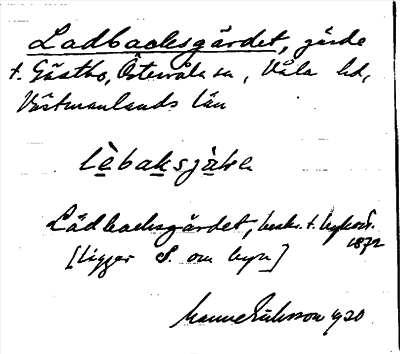 Ladbacksgärdet, gärde
t. Gästbo, Östervåla sn, Våla hd,
Västmanlands län
lèbaksjàḷe
Lädbacksgärdet, beskr. t. hykart.
1872
[Ligger S. om byn]
Manne Eriksson 1920